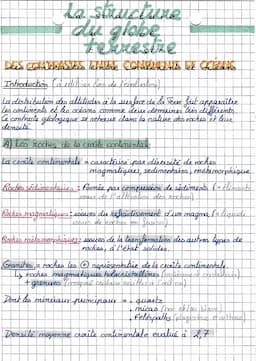 La structure
du globe
terrestre
DES CONTRASTES ENTRE CONTINENTS ET OCÉANS
Introduction (à utiliser lors de l'évaluation)
La distribution des altitudes à la surface de la Terre fait apparaître
les continents et les océans comme deux domaines bien différents.
Ce contraste géologique se retrouve dans la nature des roches et leur
densité.
A) Les roches de la croûte continentale:
La croûte continentale = caractérisée par diversité de roches
magmatiques, sédimentaires, métamorphiques
Roches sédimentaires : formés par compression de sédiments. (= éléments
issus de l'altération des roches)
Roches magmatiques : issues du refroidissement d'un magma (= liquide
issu de roches en fusion)
Roches métamorphiques : issues de la transformation des autres types de
roches, à l'état solide.
Granites = roches les ⊕ représentatives de la croûte continentale.
↳ roches magmatiques holocristallines
+ grenues
Dont les minéraux principaux = . quartz
. micas (noir et/ou blanc)
. Feldspaths (plagioclase et orthose)
Densité moyenne croûte continentale évalué à 2,7